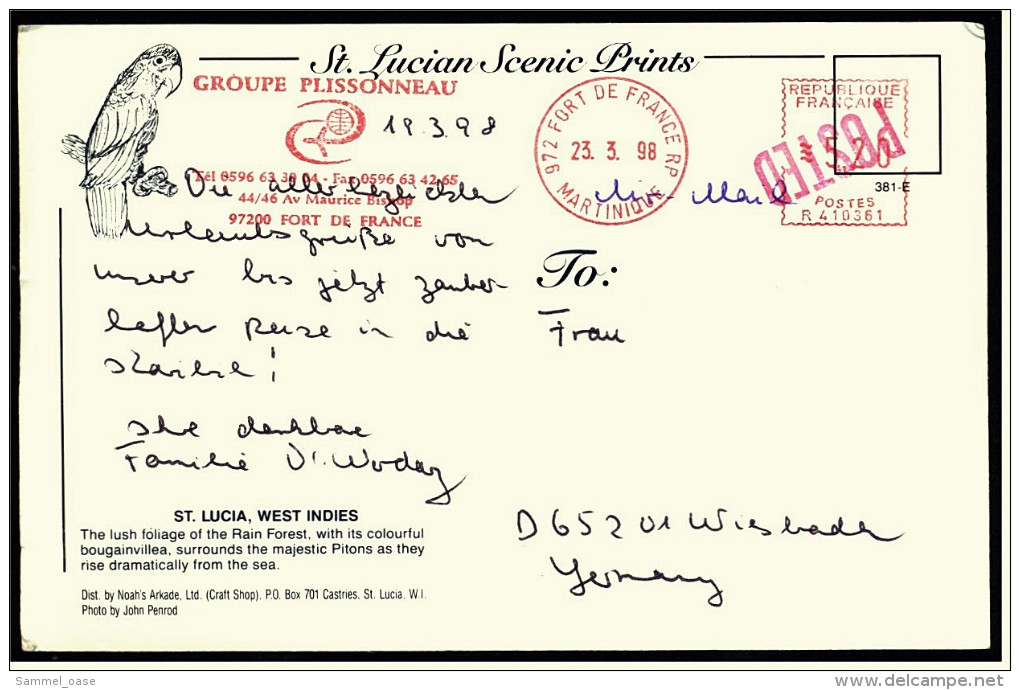 St. Lucian Scenic Prints
GROUPE PLISSONNEAU
19.3.98
Tél 0596 63 30 04 - Fax 0596 63 42 65
44/46 Av Maurice Bishop
97200 FORT DE FRANCE
972 FORT DE FRANCE RP
23. 3. 98
MARTINIQUE
REPUBLIQUE
FRANÇAISE
5,20
POSTES
R 410361
POSTED
381-E
Die allerherzlichsten
Urlaubsgrüße von
unserer bis jetzt zauber-
haften Reise in die
Karibik!
Ihre dankbare
Familie
Air-Mail
To:
Frau
D 65201 Wiesbaden
Germany
ST. LUCIA, WEST INDIES
The lush foliage of the Rain Forest, with its colourful
bougainvillea, surrounds the majestic Pitons as they
rise dramatically from the sea.
Dist. by Noah's Arkade, Ltd. (Craft Shop). P.O. Box 701 Castries. St. Lucia. W.I.
Photo by John Penrod
Sammel_oase
delcampe.net